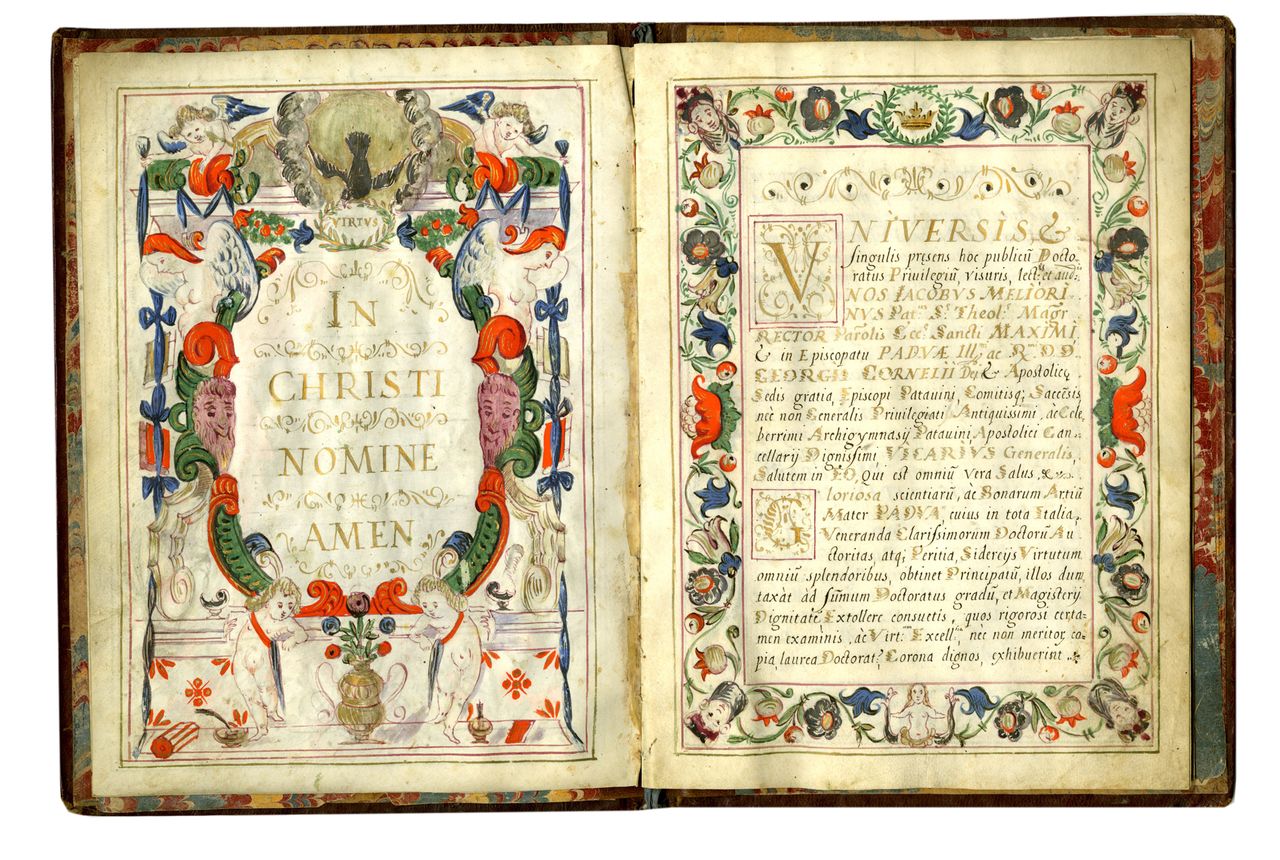 VIRTVS
IN
CHRISTI
NOMINE
AMEN
VNIVERSIS, &
singulis presens hoc publicũ Docto-
ratus Privilegiũ, visuris, lect: et aud:
NOS IACOBVS MELIORI
NVS Pat: S: Theol: Magr
RECTOR Parolis Ecc: Sancti MAXIMI
& in Episcopatu PADVÆ Ill: ac R: D D
GEORGII CORNELII Dei & Apostolicę
Sedis gratia, Episcopi Patauini, Comitisq; Saccẽsis,
nec non Generalis Privilegiati Antiquissimi, ac Cele
berrimi Archigymnasij Patauini Apostolici Can-
cellarij Dignissimi VICARIVS Generalis,
Salutem in EO, Qui est omniũ vera Salus
Gloriosa scientiarũ, ac Bonarum Artiũ
Mater PADVA, cuius in tota Italia,
Veneranda Clarissimorum Doctorũ Au
ctoritas, atq; Peritia, Sidereijs Virtutum
omniũ splendoribus, obtinet Principatũ, illos dum
taxàt ad sum̃um Doctoratus gradũ, et Magisterij
Dignitatẽ Extollere consuetis, quos rigorosi certa-
men examinis, ac Virt: Excell: nec non meritor, co-
pia, laurea Doctorat: Corona dignos, exhibuerint